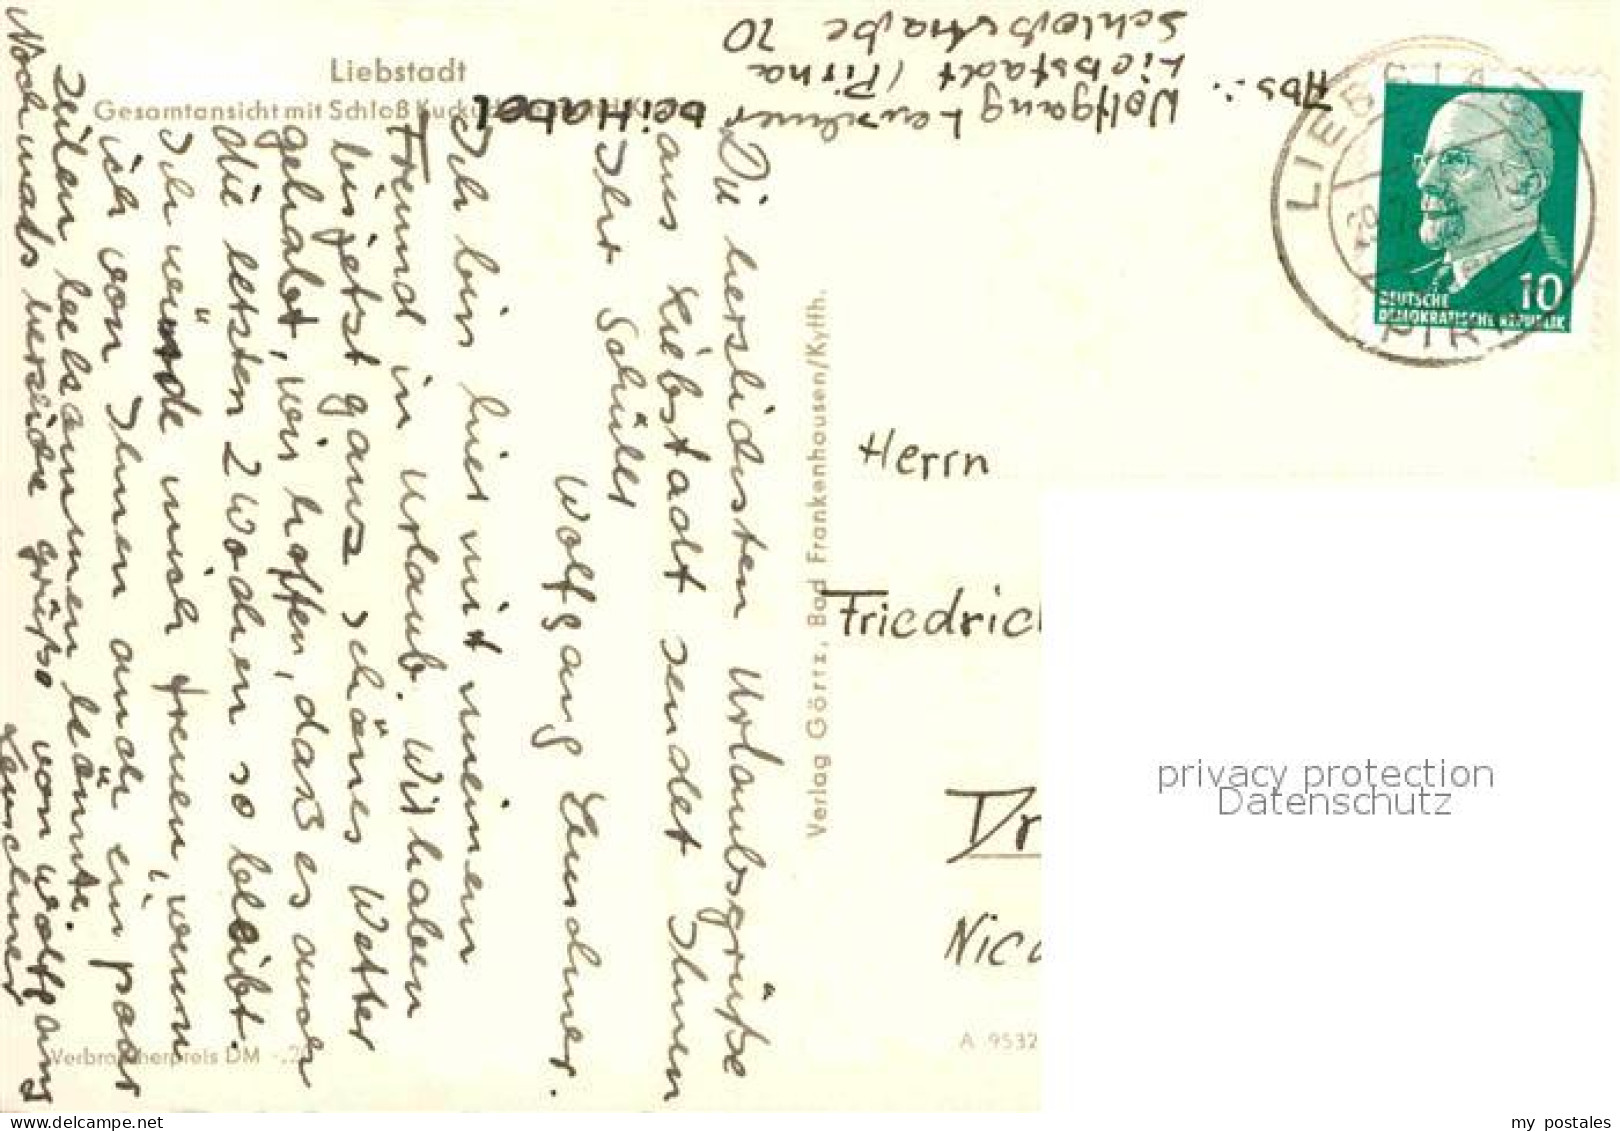 Liebstadt
Gesamtansicht mit Schloß Kuckuckstein
Abs.:
Wolfgang
bei Habel
Liebstadt / Pirna
Schloßstraße 70
Die herzlichsten Urlaubsgrüße
aus Liebstadt sendet Ihnen
Ihr Schüler
Wolfgang
Ich bin hier mit meinem
Freund in Urlaub. Wir haben
bis jetzt ganz schönes Wetter
gehabt, wir hoffen, daß es auch
die letzten 2 Wochen so bleibt.
Ich würde mich freuen, wenn
ich von Ihnen auch ein paar
Zeilen bekommen könnte.
Nochmals herzliche Grüße von Wolfgang
Verlag Görtz, Bad Frankenhausen/Kyffh.
Verbraucherpreis DM -,20
A 9532
LIEBSTADT
PIRNA
10
DEUTSCHE
DEMOKRATISCHE REPUBLIK
Herrn
Friedrich
Dr
Nico
privacy protection
Datenschutz
my postales